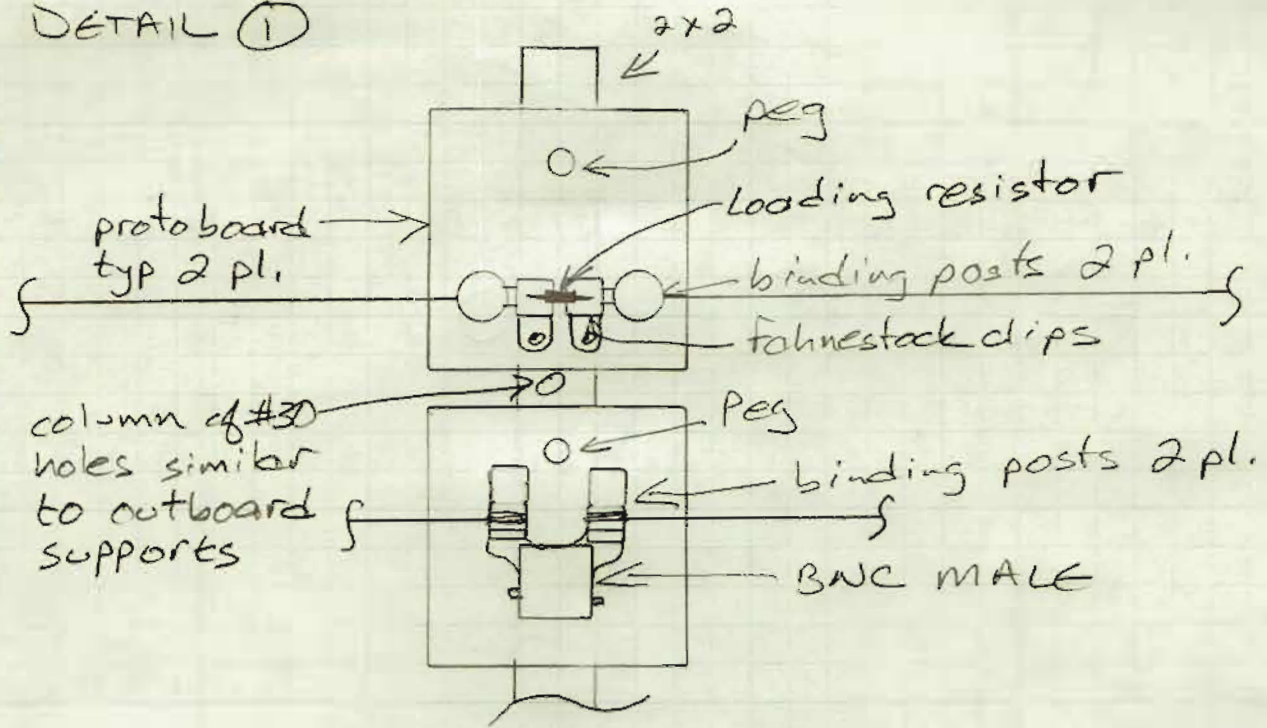 DETAIL ①
2x2
peg
Loading resistor
protoboard
typ 2 pl.
binding posts 2 pl.
fahnestock clips
column of #30
holes similar
to outboard
supports
Peg
binding posts 2 pl.
BNC MALE